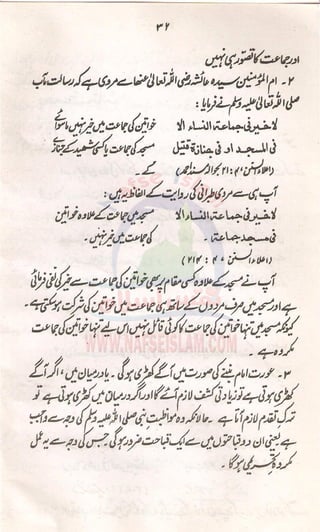 ۳۶
اور جماعت کا تصور ہی نہیں
۲۔ ام المؤمنین سیدہ عائشہ رضی اللہ تعالیٰ عنہا سے مروی ہے کہ رسالت مآب
صلی اللہ تعالیٰ علیہ وسلم نے فرمایا :
لاخیر فی جماعة النساء الا خواتین کی جماعت میں خیر نہیں ماسوائے
فی المسجد او فی جنازة قتیل مسجد کی جماعت یا کسی شہید کے جنازے
(اعلاء السنن، ۴ : ۲۱ بحوالہ مسند احمد) کے ۔
آپ ہی سے مروی طبرانی کی روایت کے الفاظ یہ ہیں :
لاخیر فی جماعة النساء الا مسجد میں جماعت کے علاوہ خواتین
فی مسجد جماعة ۔ کی جماعت میں خیر نہیں ۔
(اعلاء السنن ، ۴ : ۲۱۴)
آپ نے مسجد کے علاوہ کسی مقام پر بھی خواتین کی جماعت سے خیر کی نفی فرمائی
ہے اور مسجد میں صرف مردوں کے ساتھ ہی جماعت میں خواتین کی شرکت ہو سکتی ہے ۔
کیونکہ مسجد میں تنہا خواتین کی جماعت کا کوئی قائل نہیں اس لیے تنہا خواتین کی جماعت
مکروہ ہے ۔
WWW.NAFSEISLAM.COM
۳۔ عورت امام بننے کی صورت میں آگے کھڑی ہوگی ۔ یا درمیان میں ، اگر آگے
کھڑی ہوتی ہے تو زیادتی کشف لازم آئے گا اور اگر درمیان میں کھڑی ہوتی ہے تو
ترک تقدم لازم آتا ہے ۔ حالانکہ وہ مواظبت نبی صلی اللہ علیہ وسلم کی وجہ سے واجب
ہے یعنی ان دو قباحتوں میں سے ایک قباحت ضرور ہوگی ۔ جس کی وجہ سے یہ عمل
مکروہ تحریمی ہوگا ۔